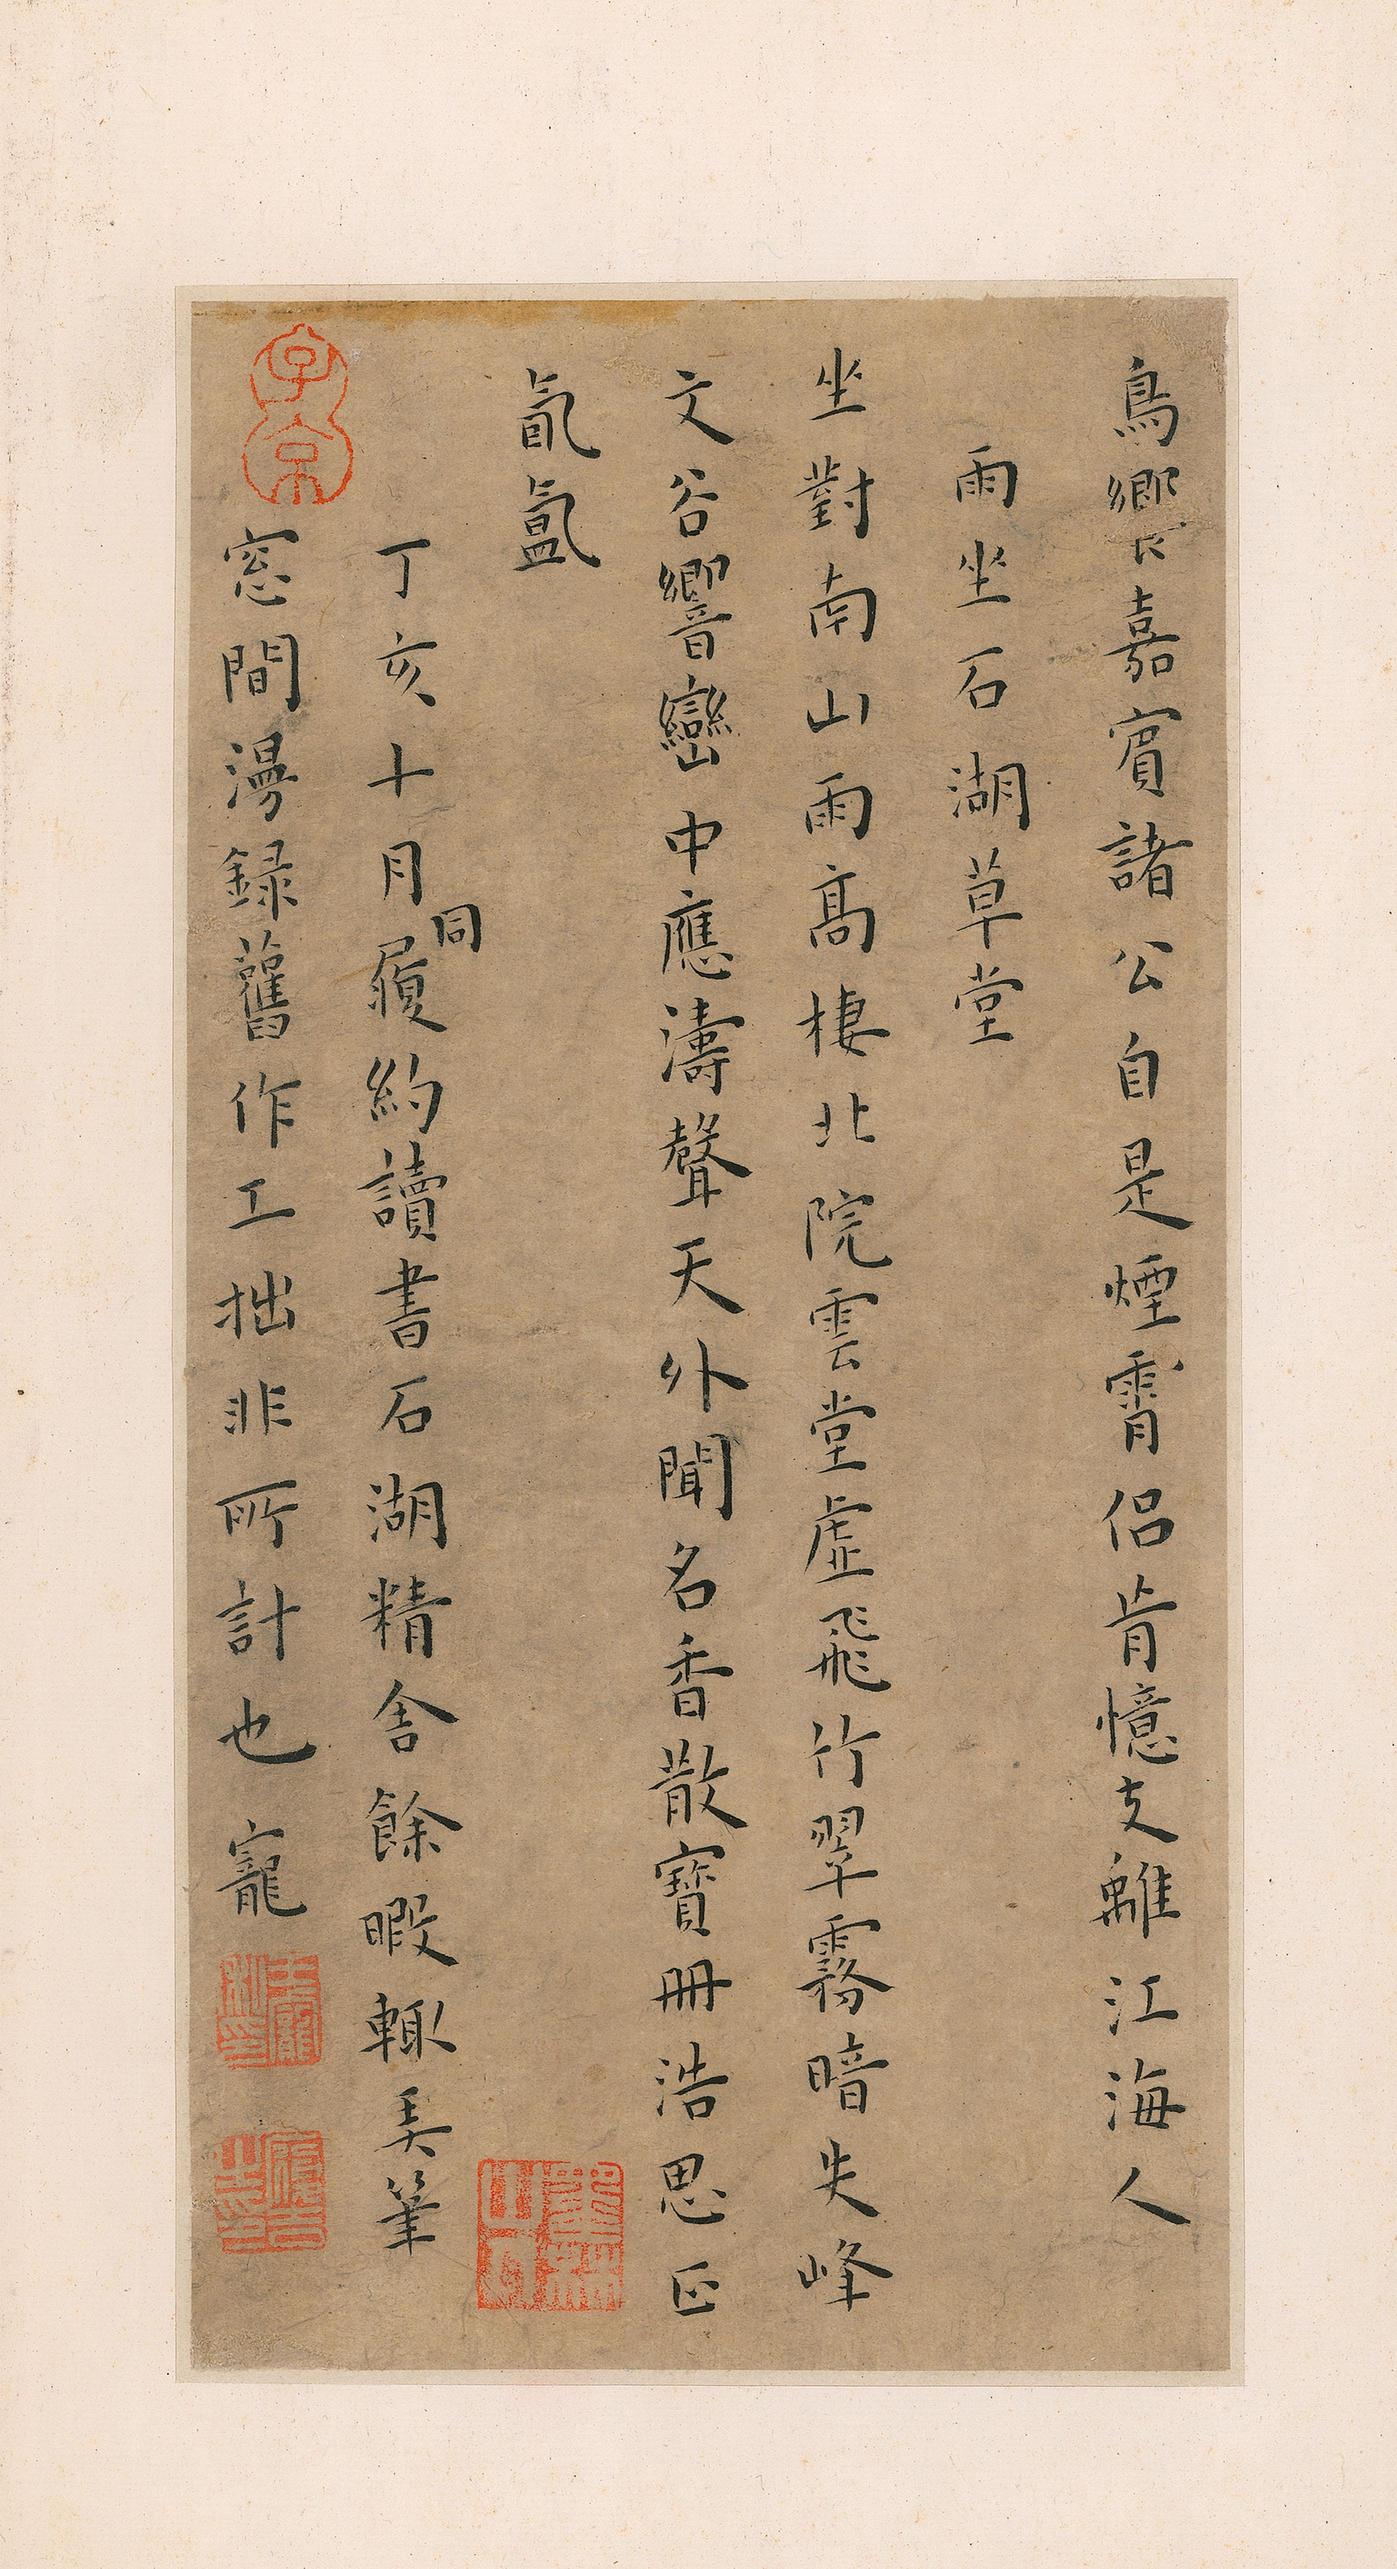 鳥饗嘉賓諸公自是煙霄侶肯憶支離江海人
雨坐石湖草堂
坐對南山雨高棲北院雲堂虛飛竹翠霧暗失峰
文谷響巒中應濤聲天外聞名香散寶冊浩思正
氤氳
丁亥十月同履約讀書石湖精舍餘暇輒弄筆
窓間漫錄舊作工拙非所計也 寵
子京
王寵私印
墨林山人